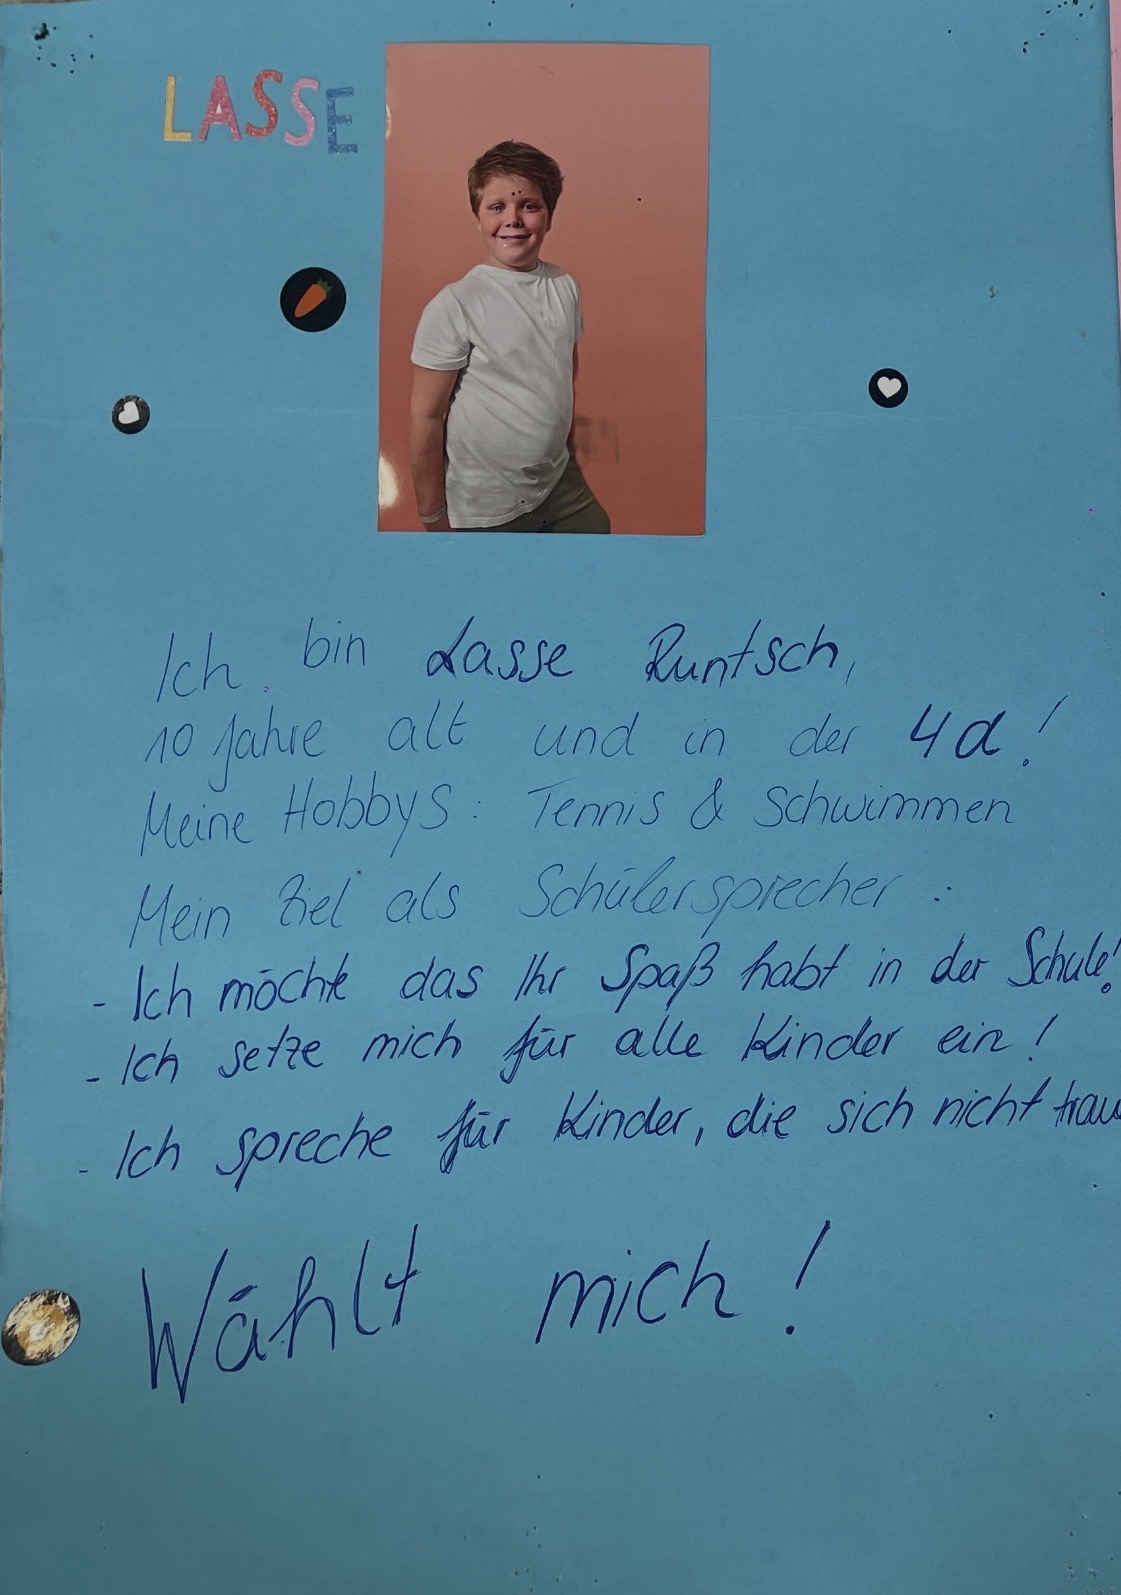 LASSE
Ich bin Lasse Runtsch,
10 Jahre alt und in der 4a!
Meine Hobbys: Tennis & Schwimmen
Mein Ziel als Schülersprecher:
- Ich möchte das Ihr Spaß habt in der Schule!
- Ich setze mich für alle Kinder ein!
- Ich spreche für Kinder, die sich nicht trau
Wählt mich!